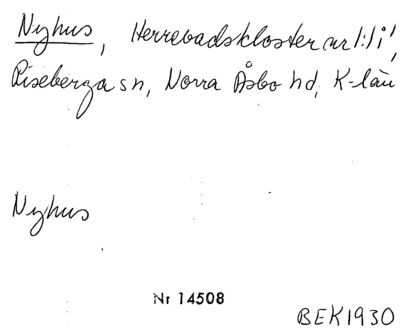 Nyhus, Herrevadskloster nr 1:1 i,
Riseberga sn, Norra Åsbo hd, K-län
Nyhus
Nr 14508
BEK 1930